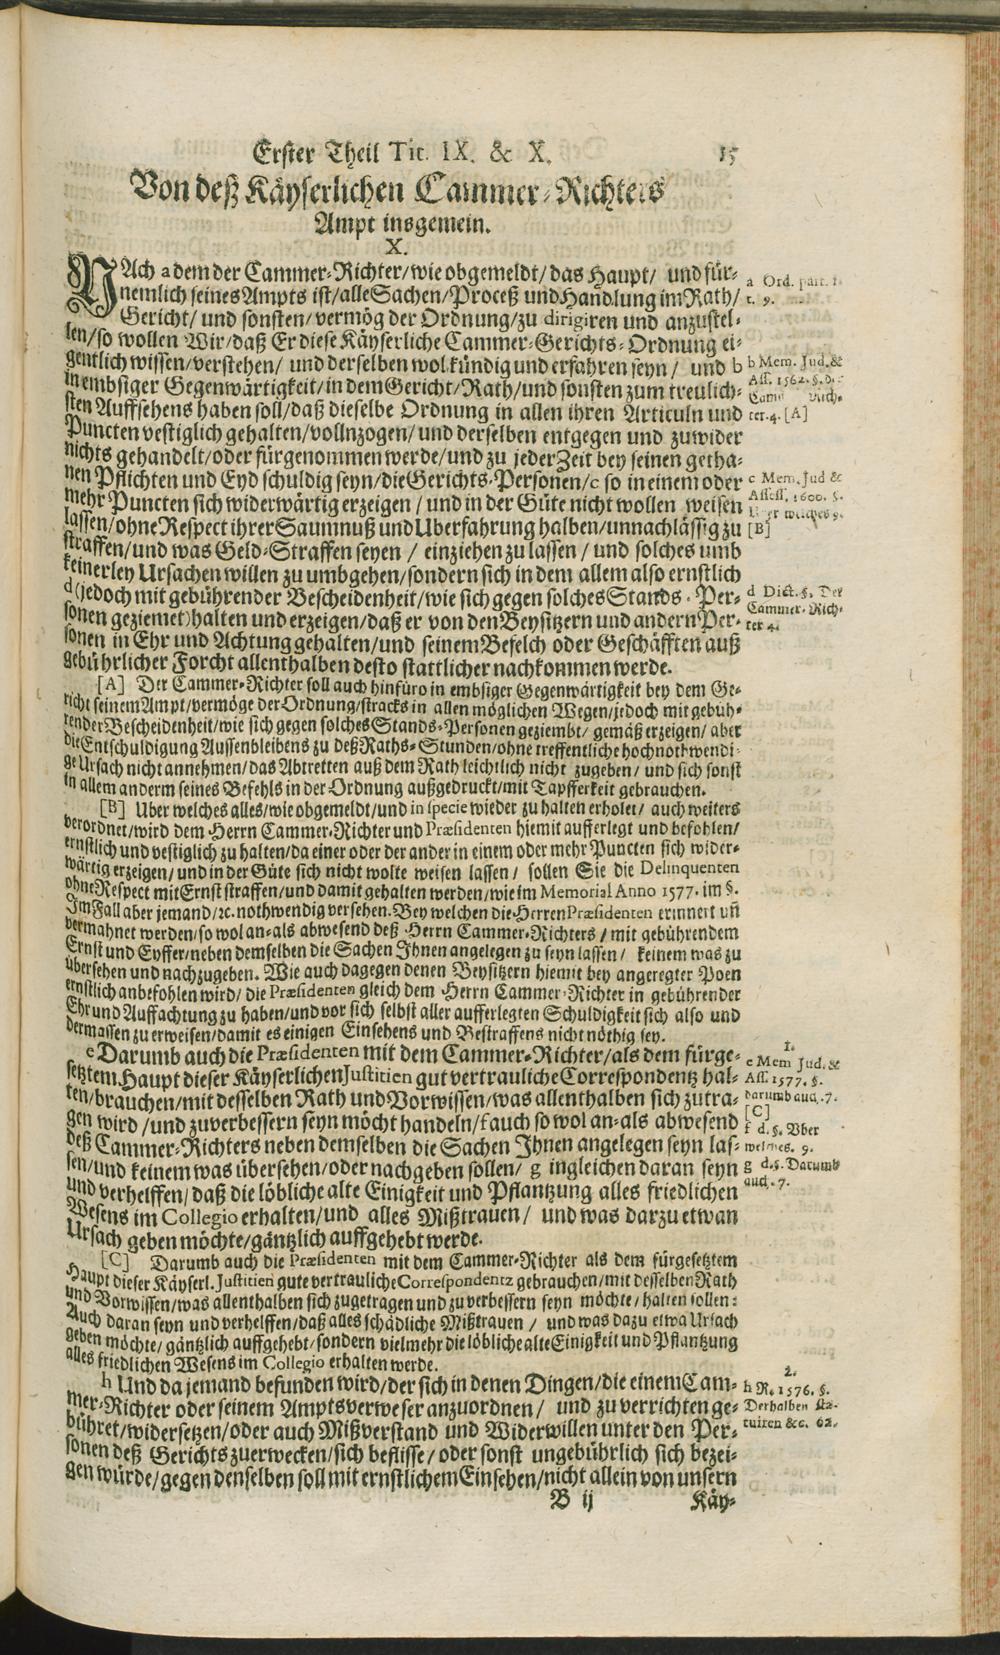 Erster Theil Tit. IX. & X. 15
Von deß Käyserlichen Cammer-Richters
Ampt insgemein.
X.
NAch a dem der Cammer-Richter/wie obgemeldt/das Haupt/ und für-
nemlich seines Ampts ist/alle Sachen/Proceß und Handlung im Rath/
Gericht/ und sonsten/ vermög der Ordnung/zu dirigiren und anzustel-
len/so wollen Wir/daß Er diese Käyserliche Cammer-Gerichts-Ordnung ei-
gentlich wissen/verstehen/ und derselben wol kündig und erfahren seyn / und b
in embsiger Gegenwärtigkeit/in dem Gericht/Rath/und sonsten zum treulich-
sten Auffsehens haben soll/daß dieselbe Ordnung in allen ihren Articuln und
Puncten vestiglich gehalten/vollnzogen/und derselben entgegen und zuwider
nichts gehandelt/oder fürgenommen werde/und zu jeder Zeit bey seinen getha-
nen Pflichten und Eyd schuldig seyn/die Gerichts-Personen/c so in einem oder
mehr Puncten sich widerwärtig erzeigen / und in der Güte nicht wollen weisen
lassen/ohne Respect ihrer Saumnuß und Uberfahrung halben/unnachlässig zu
straffen/und was Geld-Straffen seyen / einziehen zu lassen / und solches umb
keinerley Ursachen willen zu umbgehen/sondern sich in dem allem also ernstlich
d (jedoch mit gebührender Bescheidenheit/wie sich gegen solches Stands-Per-
sonen geziemet) halten und erzeigen/daß er von den Beysitzern und andern Per-
sonen in Ehr und Achtung gehalten/und seinem Befelch oder Geschäfften auß
gebührlicher Forcht allenthalben desto stattlicher nachkommen werde.
[A] Der Cammer-Richter soll auch hinfüro in embsiger Gegenwärtigkeit bey dem Ge-
richt seinem Ampt/vermöge der Ordnung/stracks in allen möglichen Wegen/jedoch mit gebüh-
render Bescheidenheit/wie sich gegen solches Stands-Personen geziembt/ gemäß erzeigen/ aber
die Entschuldigung Aussenbleibens zu deß Raths-Stunden/ohne treffentliche hochnothwendi-
ge Ursach nicht annehmen/das Abtretten auß dem Rath leichtlich nicht zugeben/ und sich sonst
in allem anderm seines Befehls in der Ordnung außgedruckt/mit Tapfferkeit gebrauchen.
[B] Uber welches alles/wie obgemeldt/und in specie wieder zu halten erholet/ auch weiters
verordnet/wird dem Herrn Cammer-Richter und Præsidenten hiemit aufferlegt und befohlen/
ernstlich und vestiglich zu halten/da einer oder der ander in einem oder mehr Puncten sich wider-
wärtig erzeigen/und in der Güte sich nicht wolte weisen lassen/ sollen Sie die Delinquenten
ohne Respect mit Ernst straffen/und damit gehalten werden/wie im Memorial Anno 1577. im §.
Im Fall aber jemand/ꝛc. nothwendig versehen. Bey welchen die Herren Præsidenten erinnert uñ
vermahnet werden/so wol an-als abwesend deß Herrn Cammer-Richters / mit gebührendem
Ernst und Eyffer/neben demselben die Sachen Ihnen angelegen zu seyn lassen/ keinem was zu
übersehen und nachzugeben. Wie auch dagegen denen Beysitzern hiemit bey angeregter Poen
ernstlich anbefohlen wird/ die Præsidenten gleich dem Herrn Cammer-Richter in gebührender
Ehr und Auffachtung zu haben/und vor sich selbst aller aufferlegten Schuldigkeit sich also und
dermassen zu erweisen/damit es einigen Einsehens und Bestraffens nicht nöthig sey.
e Darumb auch die Præsidenten mit dem Cammer-Richter/als dem fürge-
setztem Haupt dieser Käyserlichen Justitien gut vertrauliche Correspondentz hal-
ten/brauchen/mit desselben Rath und Vorwissen/was allenthalben sich zutra-
gen wird /und zuverbessern seyn möcht handeln/f auch so wol an-als abwesend
deß Cammer-Richters neben demselben die Sachen Ihnen angelegen seyn las-
sen/und keinem was übersehen/oder nachgeben sollen/ g ingleichen daran seyn
und verhelffen/ daß die löbliche alte Einigkeit und Pflantzung alles friedlichen
Wesens im Collegio erhalten/und alles Mißtrauen/ und was darzu etwan
Ursach geben möchte/gäntzlich auffgehebt werde.
[C] Darumb auch die Præsidenten mit dem Cammer-Richter als dem fürgesetztem
Haupt dieser Käyserl. Justitien gute vertrauliche Correspondentz gebrauchen/mit desselben Rath
und Vorwissen/was allenthalben sich zugetragen und zu verbessern seyn möchte/halten sollen:
Auch daran seyn und verhelffen/daß alles schädliche Mißtrauen / und was dazu etwa Ursach
geben möchte/ gäntzlich auffgehebt/sondern vielmehr die löbliche alte Einigkeit und Pflantzung
alles friedlichen Wesens im Collegio erhalten werde.
h Und da jemand befunden wird/der sich in denen Dingen/die einem Cam-
mer-Richter oder seinem Amptsverweser anzuordnen/ und zu verrichten ge-
bühret/widersetzen/oder auch Mißverstand und Widerwillen unter den Per-
sonen deß Gerichts zuerwecken/sich beflisse/oder sonst ungebührlich sich bezei-
gen würde/gegen denselben soll mit ernstlichem Einsehen/nicht allein von unsern
B ij Käy-
a Ord. part. 1.
t. 9.
b Mem. Jud. &
Ass. 1562. §. d.
Cam Rich-
ter. 4. [A]
c Mem. Jud &
Assess. 1600. §.
welches 9.
[B]
d Dict. §. Der
Cammer-Rich-
ter 4.
1.
e Mem Jud. &
Ass. 1577. §.
darumb auch. 7.
[C]
f d. §. Uber
welches. 9.
g d. §. Darumb
auch. 7.
2.
h R. 1576. §.
Derhalben sta-
tuiren &c. 62.